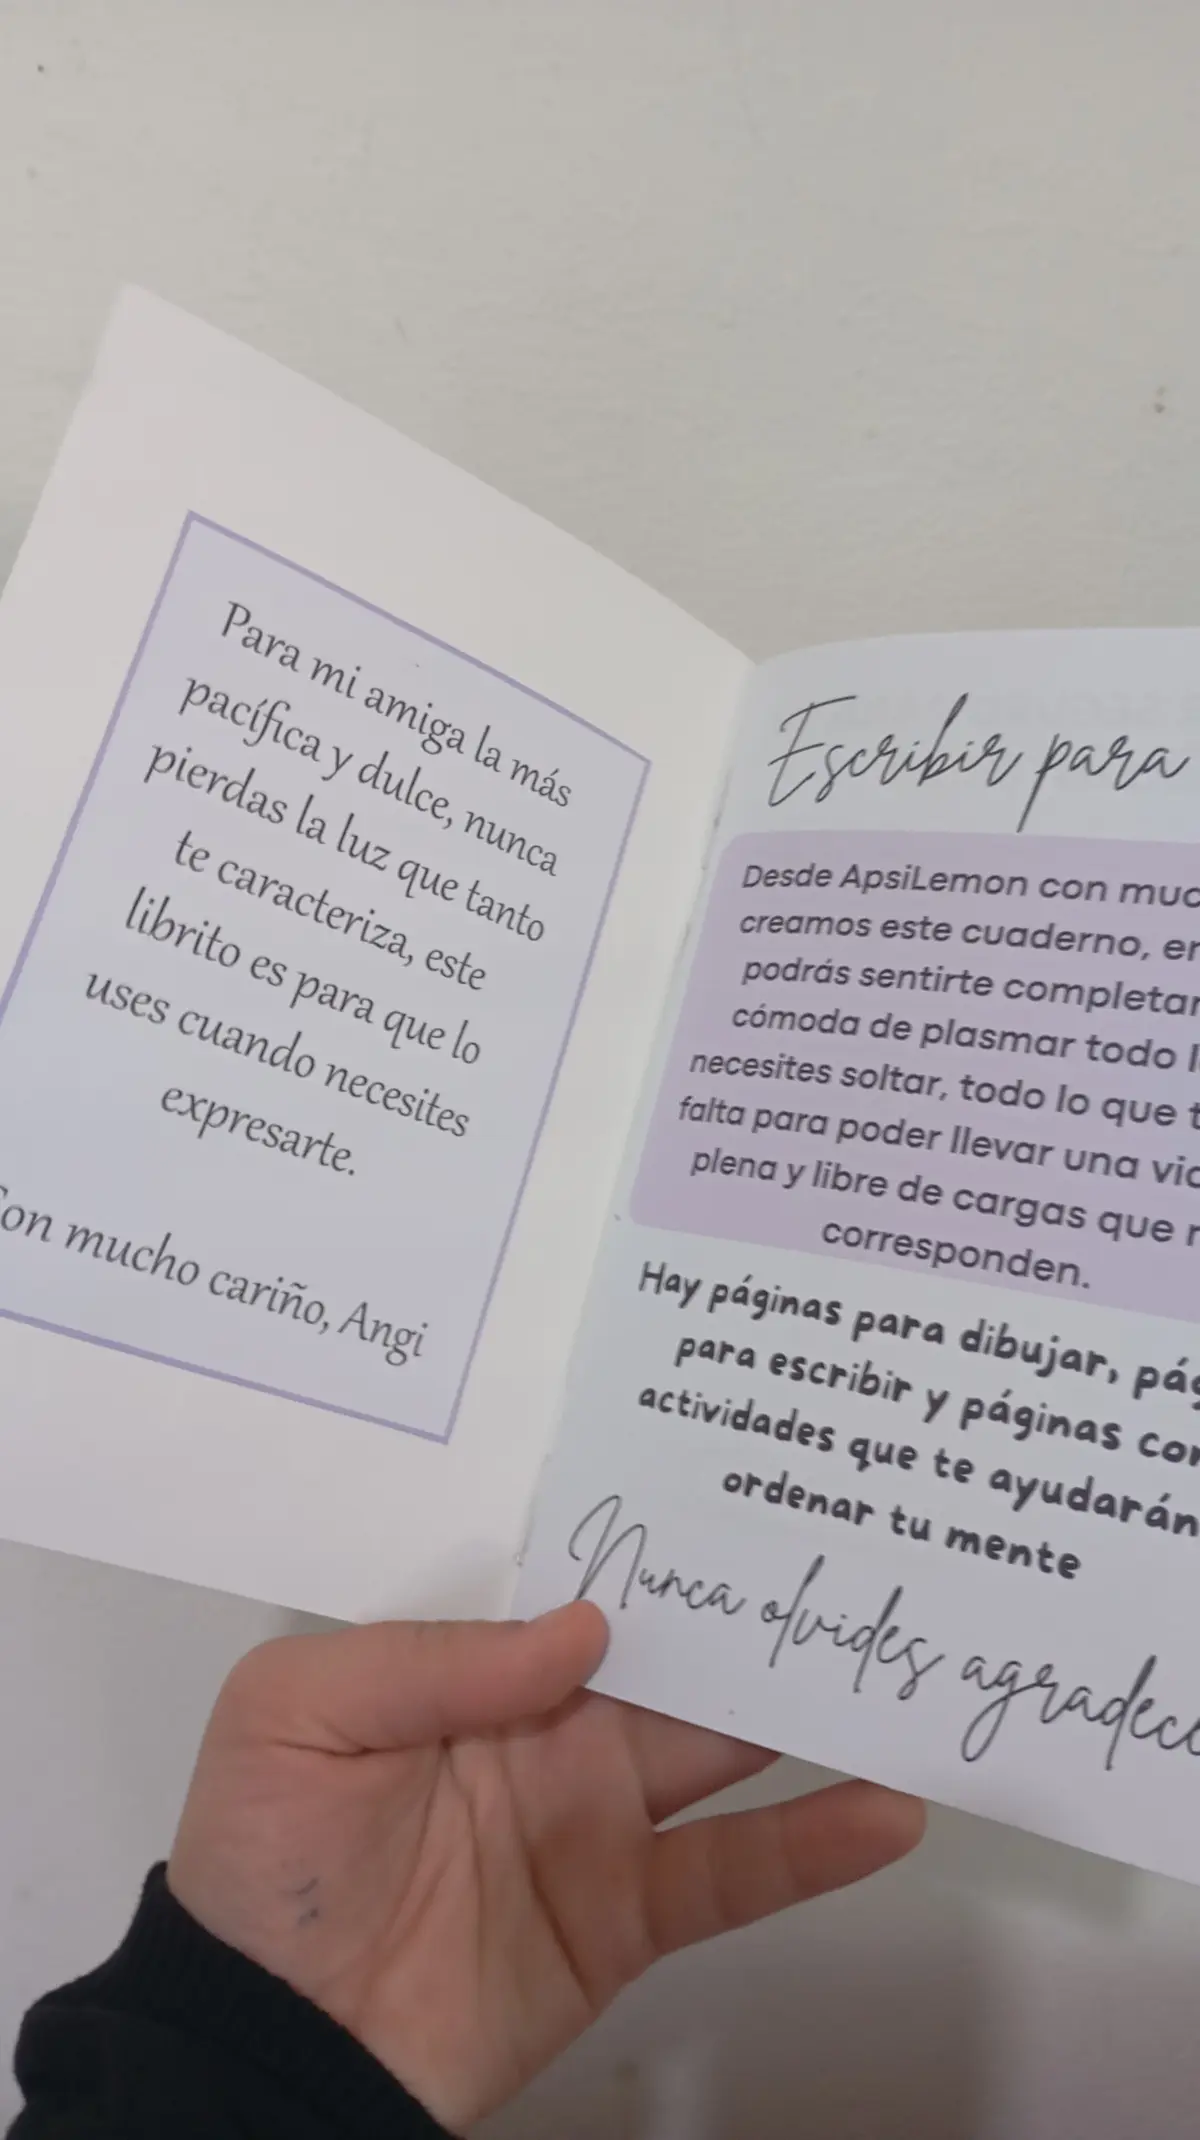 Para mi amiga la más
pacífica y dulce, nunca
pierdas la luz que tanto
te caracteriza, este
librito es para que lo
uses cuando necesites
expresarte.
Con mucho cariño, Angi
Escribir para
Desde ApsiLemon con
creamos este cuaderno,
podrás sentirte
cómoda de plasmar todo
necesites soltar, todo lo que
falta para poder llevar una
plena y libre de cargas que
corresponden.
Hay páginas para dibujar,
para escribir y páginas
actividades que te ayudarán
ordenar tu mente
Nunca olvides